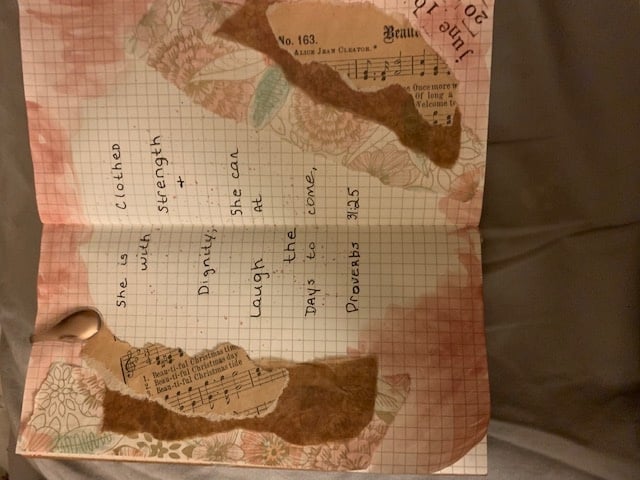 She is Clothed
with Strength
+
Dignity; She can
Laugh At
the
Days to come,
Proverbs 31:25
No. 163.
ALICE JEAN CLEATOR.
Once more w
Of long a
Welcome to
June 10
20
1. Beau-ti-ful Christmas time
2. Beau-ti-ful Christmas day
Beau-ti-ful Christmas tide